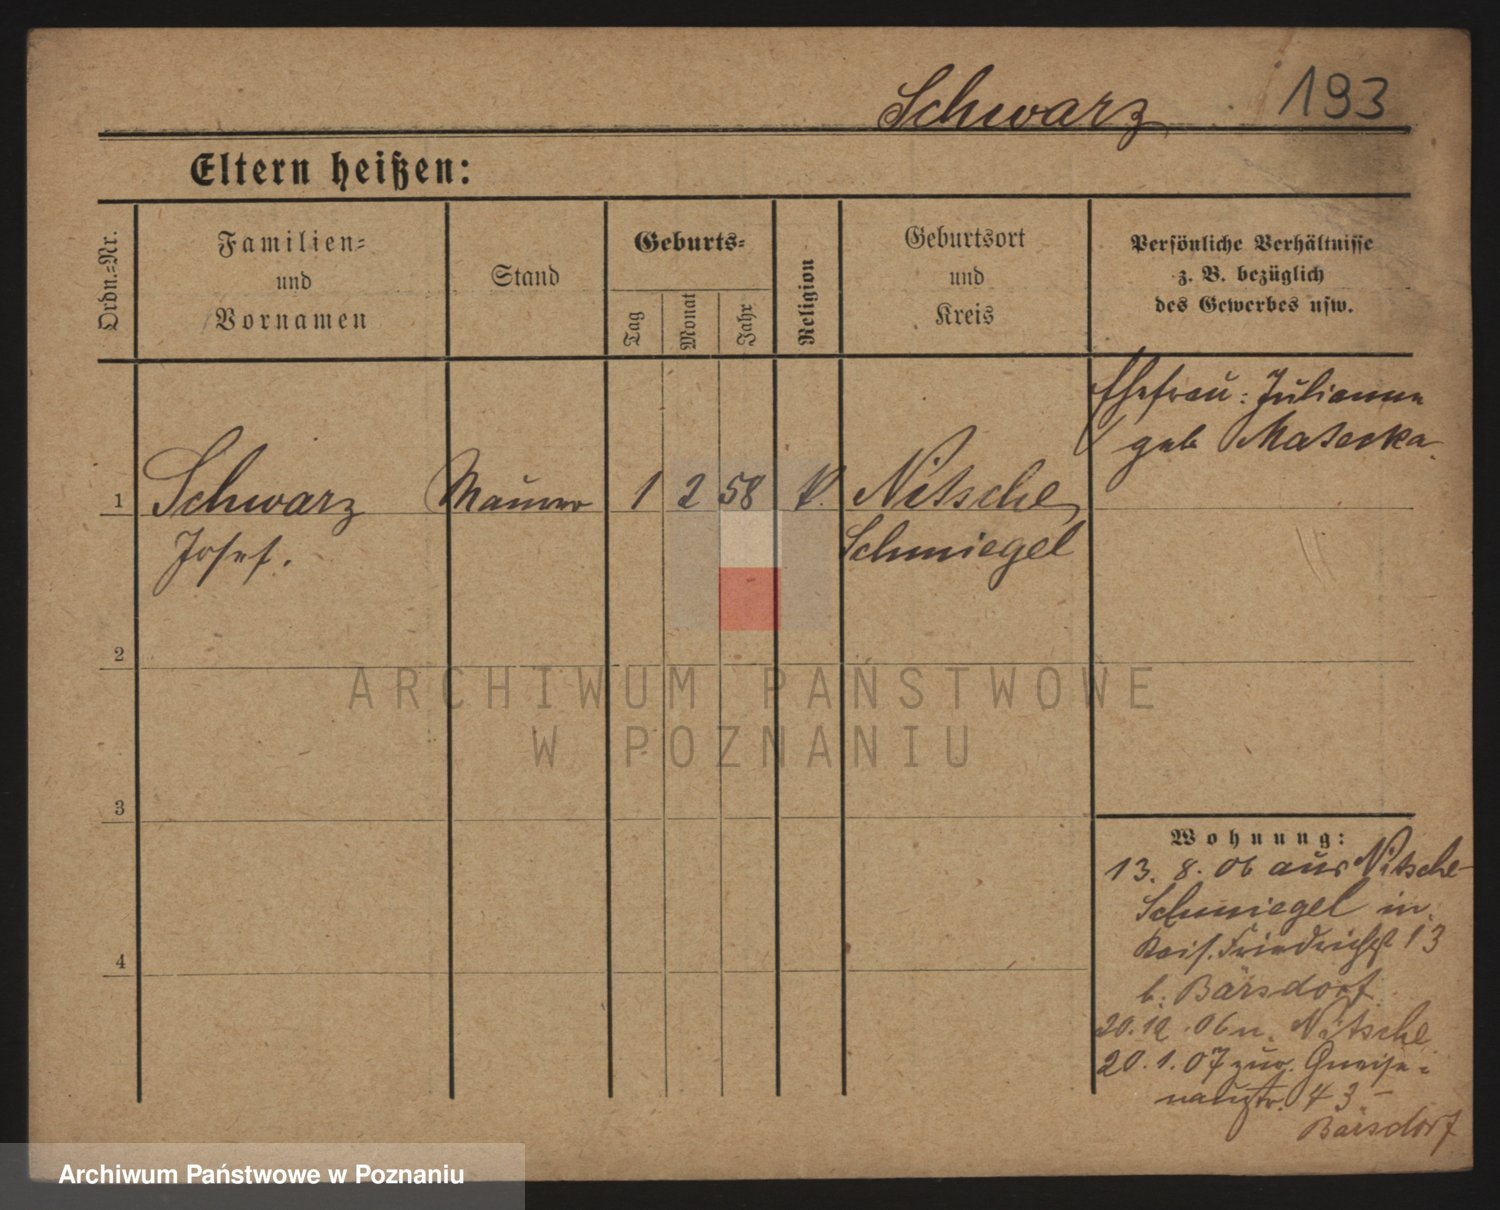 Schwarz 193
Eltern heißen:
Ordn.=Nr.
Familien=
und
Vornamen
Stand
Geburts=
Tag
Monat
Jahr
Religion
Geburtsort
und
Kreis
Persönliche Verhältnisse
z. B. bezüglich
des Gewerbes usw.
Ehefrau: Julianna
geb
1 Schwarz Maurer 1 2 58 k. Nitsche
Josef. Schmiegel
2
3
4
Wohnung:
13. 8. 06 aus Nitsche
Schmiegel in
Kais. Friedrichst 13
b. Bärsdorf
20. 12. 06 n. Nitsche
20. 1. 07 zur. Gneise=
naustr. 43 -
Bärsdorf
ARCHIWUM PAŃSTWOWE
W POZNANIU
Archiwum Państwowe w Poznaniu